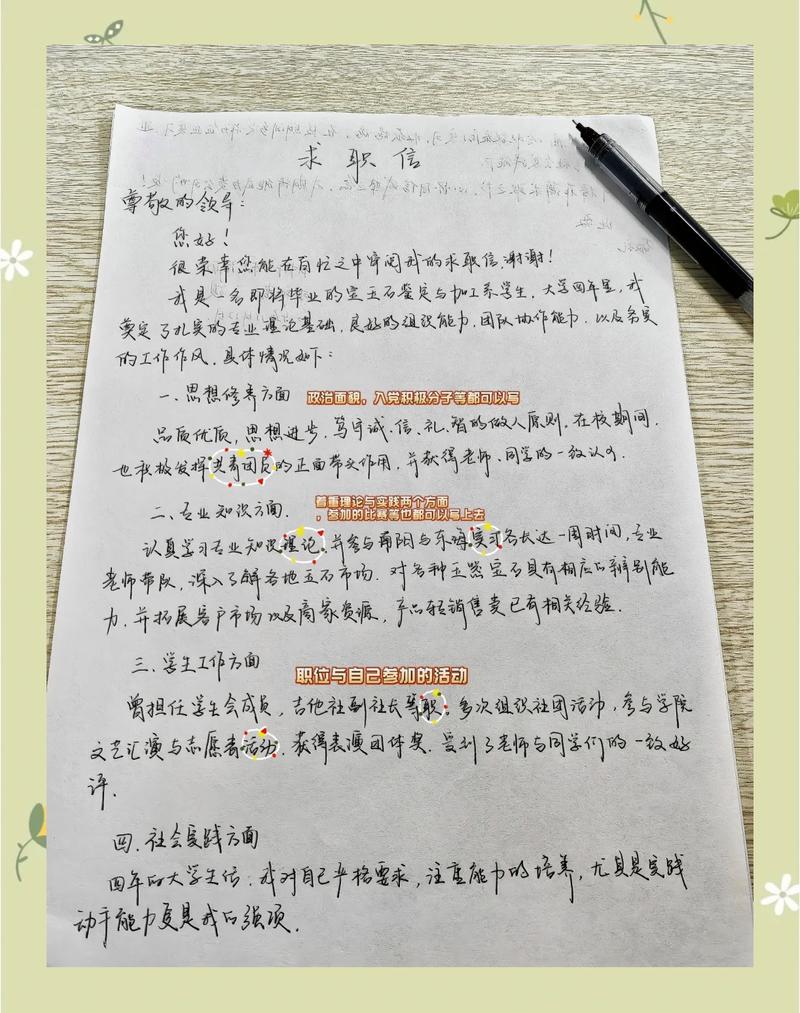 求职信
尊敬的领导：
您好！
很荣幸您能在百忙之中审阅我的求职信，谢谢！
我是一名即将毕业的宝玉石鉴定与加工系学生，大学四年里，我
奠定了扎实的专业理论基础，良好的组织能力，团队协作能力，以及务实
的工作作风，具体情况如下：
一、思想修养方面 政治面貌，入党积极分子等都可以写
品质优质，思想进步，笃守诚、信、礼、智的做人原则，在校期间，
也积极发挥共青团员的正面带头作用，并获得老师、同学的一致认可。
着重理论与实践两个方面
二、专业知识方面． ，参加的比赛等也都可以写上去
认真学习专业知识理论，并参与南阳与东海实习各长达一周时间，专业
老师带队，深入了解各地玉石市场．对各种玉器宝石具有相应的辨别能
力．并拓展客户市场以及商家资源，产品转销售卖已有相关经验．
三、学生工作方面 职位与自己参加的活动
曾担任学生会成员，吉他社副社长等职，多次组织社团活动，参与学院
文艺汇演与志愿者活动．获得表演团体奖．受到了老师与同学们的一致好
评．
四．社会实践方面
四年的大学生活．我对自己严格要求，注重能力的培养，尤其是实践
动手能力更是我的强项．